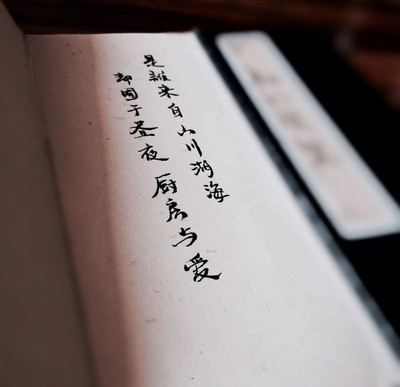 是誰来自山川湖海
却囿于昼夜厨房与爱